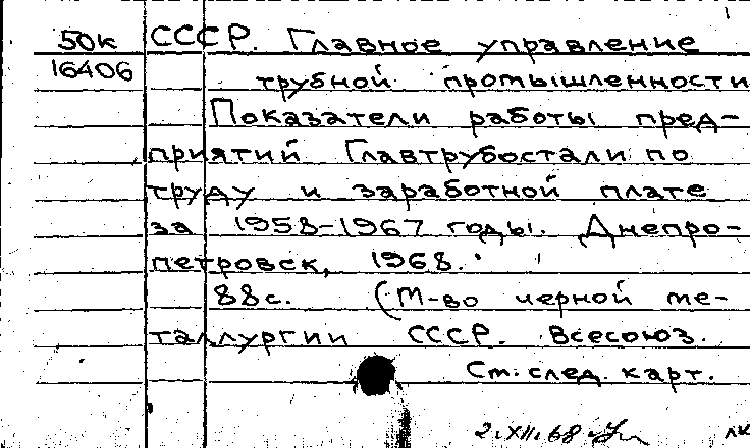 50к СССР. Главное управление
16406 трубной промышленности
Показатели работы пред-
приятий Главтрубостали по
труду и заработной плате
за 1958-1967 годы. Днепро-
петровск, 1968.
88с. (М-во черной ме-
таллургии СССР. Всесоюз.
См. след. карт.
2.XII.68